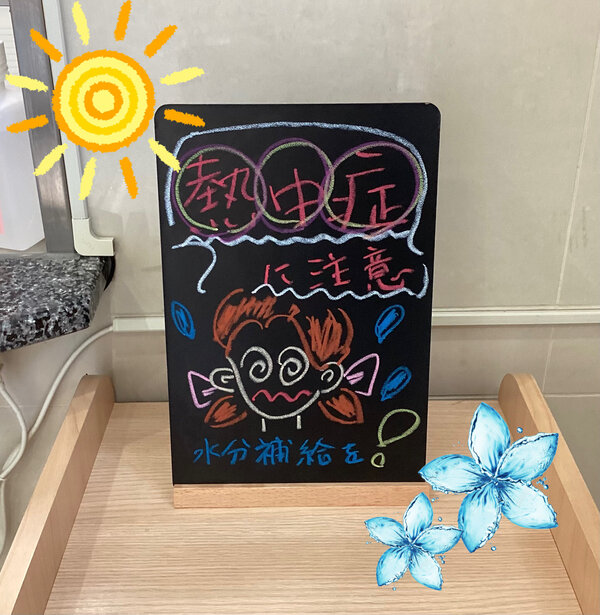 熱中症
に注意
水分補給を!